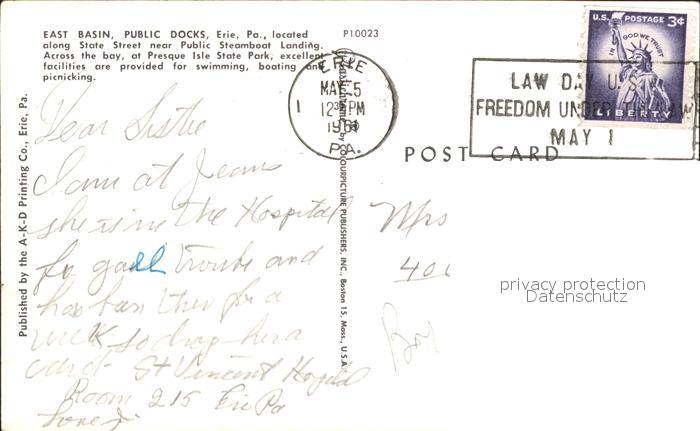 EAST BASIN, PUBLIC DOCKS, Erie, Pa., located
along State Street near Public Steamboat Landing.
Across the bay, at Presque Isle State Park, excellent
facilities are provided for swimming, boating and
picnicking.
P10023
Published by the A-K-D Printing Co., Erie, Pa.
by COLOURPICTURE PUBLISHERS, INC., Boston 15, Mass., U.S.A.
ERIE
MAY 5
12 PM
PA.
U.S. POSTAGE 3¢
IN GOD WE TRUST
LIBERTY
LAW DAY U.S.
FREEDOM UNDER THE LAW
MAY 1
POST CARD
Dear Sistie
I am at Jeans
she is in the Hospital
for gall trouble and
has ban ther for a
week so drop her a
card - St Vincent Hospital
Room 215 Erie Pa
Love
Mrs
406
privacy protection
Datenschutz